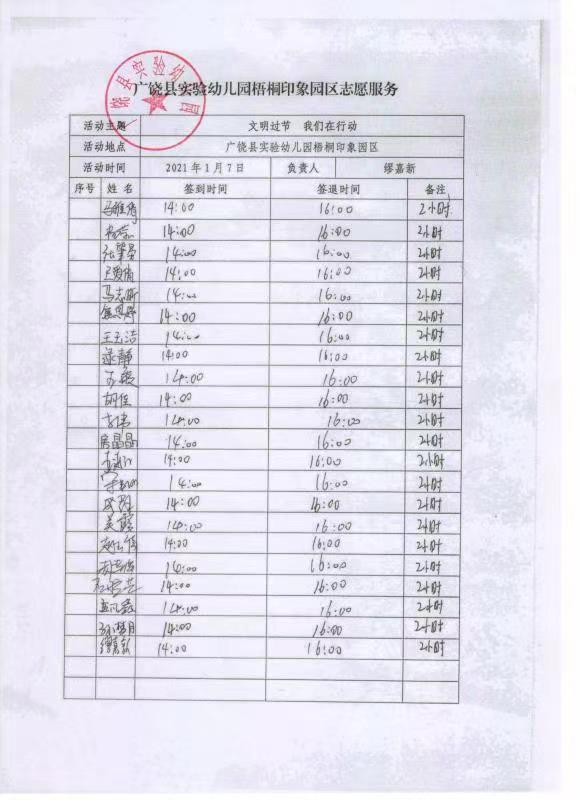 广饶县实验幼儿园
广饶县实验幼儿园梧桐印象园区志愿服务
活动主题 文明过节 我们在行动
活动地点 广饶县实验幼儿园梧桐印象园区
活动时间 2021年1月7日 负责人 缪嘉新
序号 姓名 签到时间 签退时间 备注
马雅倩 14:00 16:00 2小时
14:00 16:00 2小时
张肇昌 14:00 16:00 2小时
14:00 16:00 2小时
马志新 14:00 16:00 2小时
14:00 16:00 2小时
王玉洁 14:00 16:00 2小时
14:00 16:00 2小时
14:00 16:00 2小时
胡佳 14:00 16:00 2小时
14:00 16:00 2小时
房晶晶 14:00 16:00 2小时
14:00 16:00 2小时
14:00 16:00 2小时
14:00 16:00 2小时
吴霞 14:00 16:00 2小时
14:00 16:00 2小时
14:00 16:00 2小时
14:00 16:00 2小时
14:00 16:00 2小时
14:00 16:00 2小时
缪嘉新 14:00 16:00 2小时